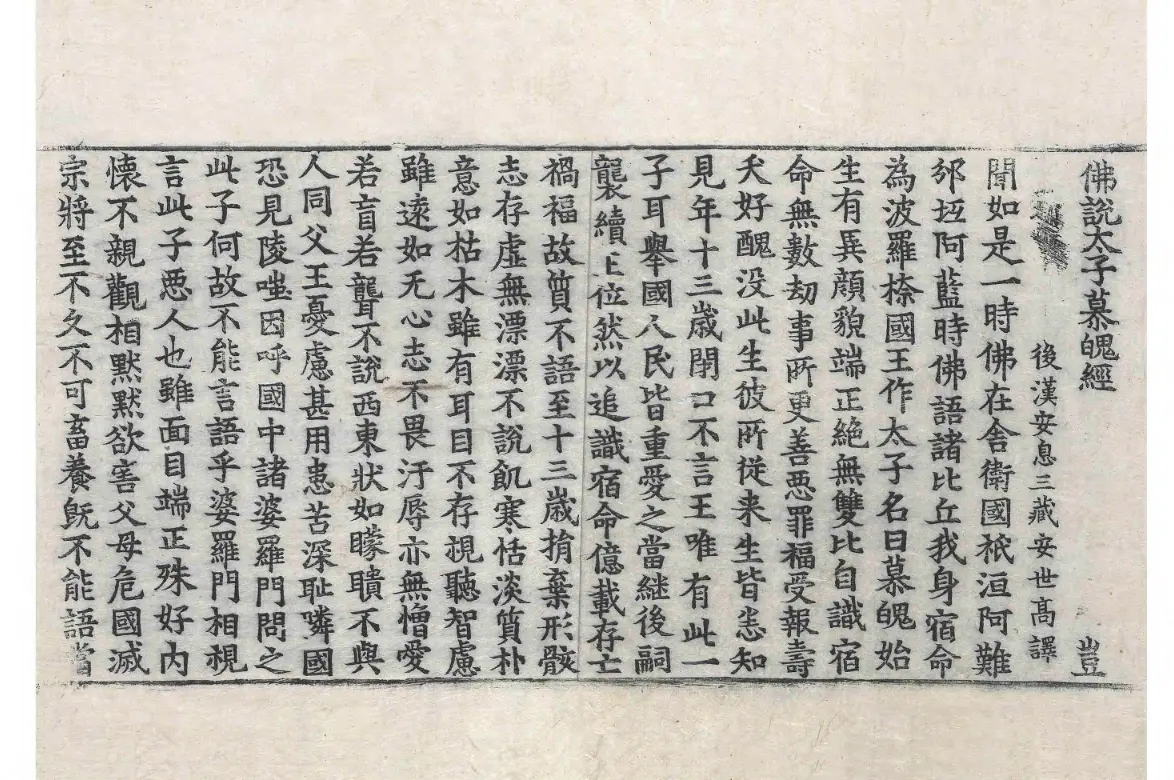 佛說太子慕魄經　豈
後漢安息三藏安世高譯
聞如是一時佛在舍衛國祇洹阿難
邠坻阿藍時佛語諸比丘我身宿命
為波羅㮈國王作太子名曰慕魄始
生有異顏貌端正絕無雙比自識宿
命無數劫事所更善惡罪福受報壽
夭好醜没此生彼所従来生皆悉知
見年十三歲閉口不言王唯有此一
子耳舉國人民皆重愛之當継後嗣
襲續王位然以追識宿命億載存亡
禍福故質不語至十三歲捐棄形骸
志存虛無漂漂不說飢寒恬淡質朴
意如枯木雖有耳目不存視聽智慮
雖遠如无心志不畏汙辱亦無憎愛
若盲若聾不說西東狀如矇聵不與
人同父王憂慮甚用患苦深耻隣國
恐見陵嗤因呼國中諸婆羅門問之
此子何故不能言語乎婆羅門相視
言此子惡人也雖面目端正殊好內
懷不親觀相默默欲害父母危國滅
宗將至不久不可畜養旣不能語當